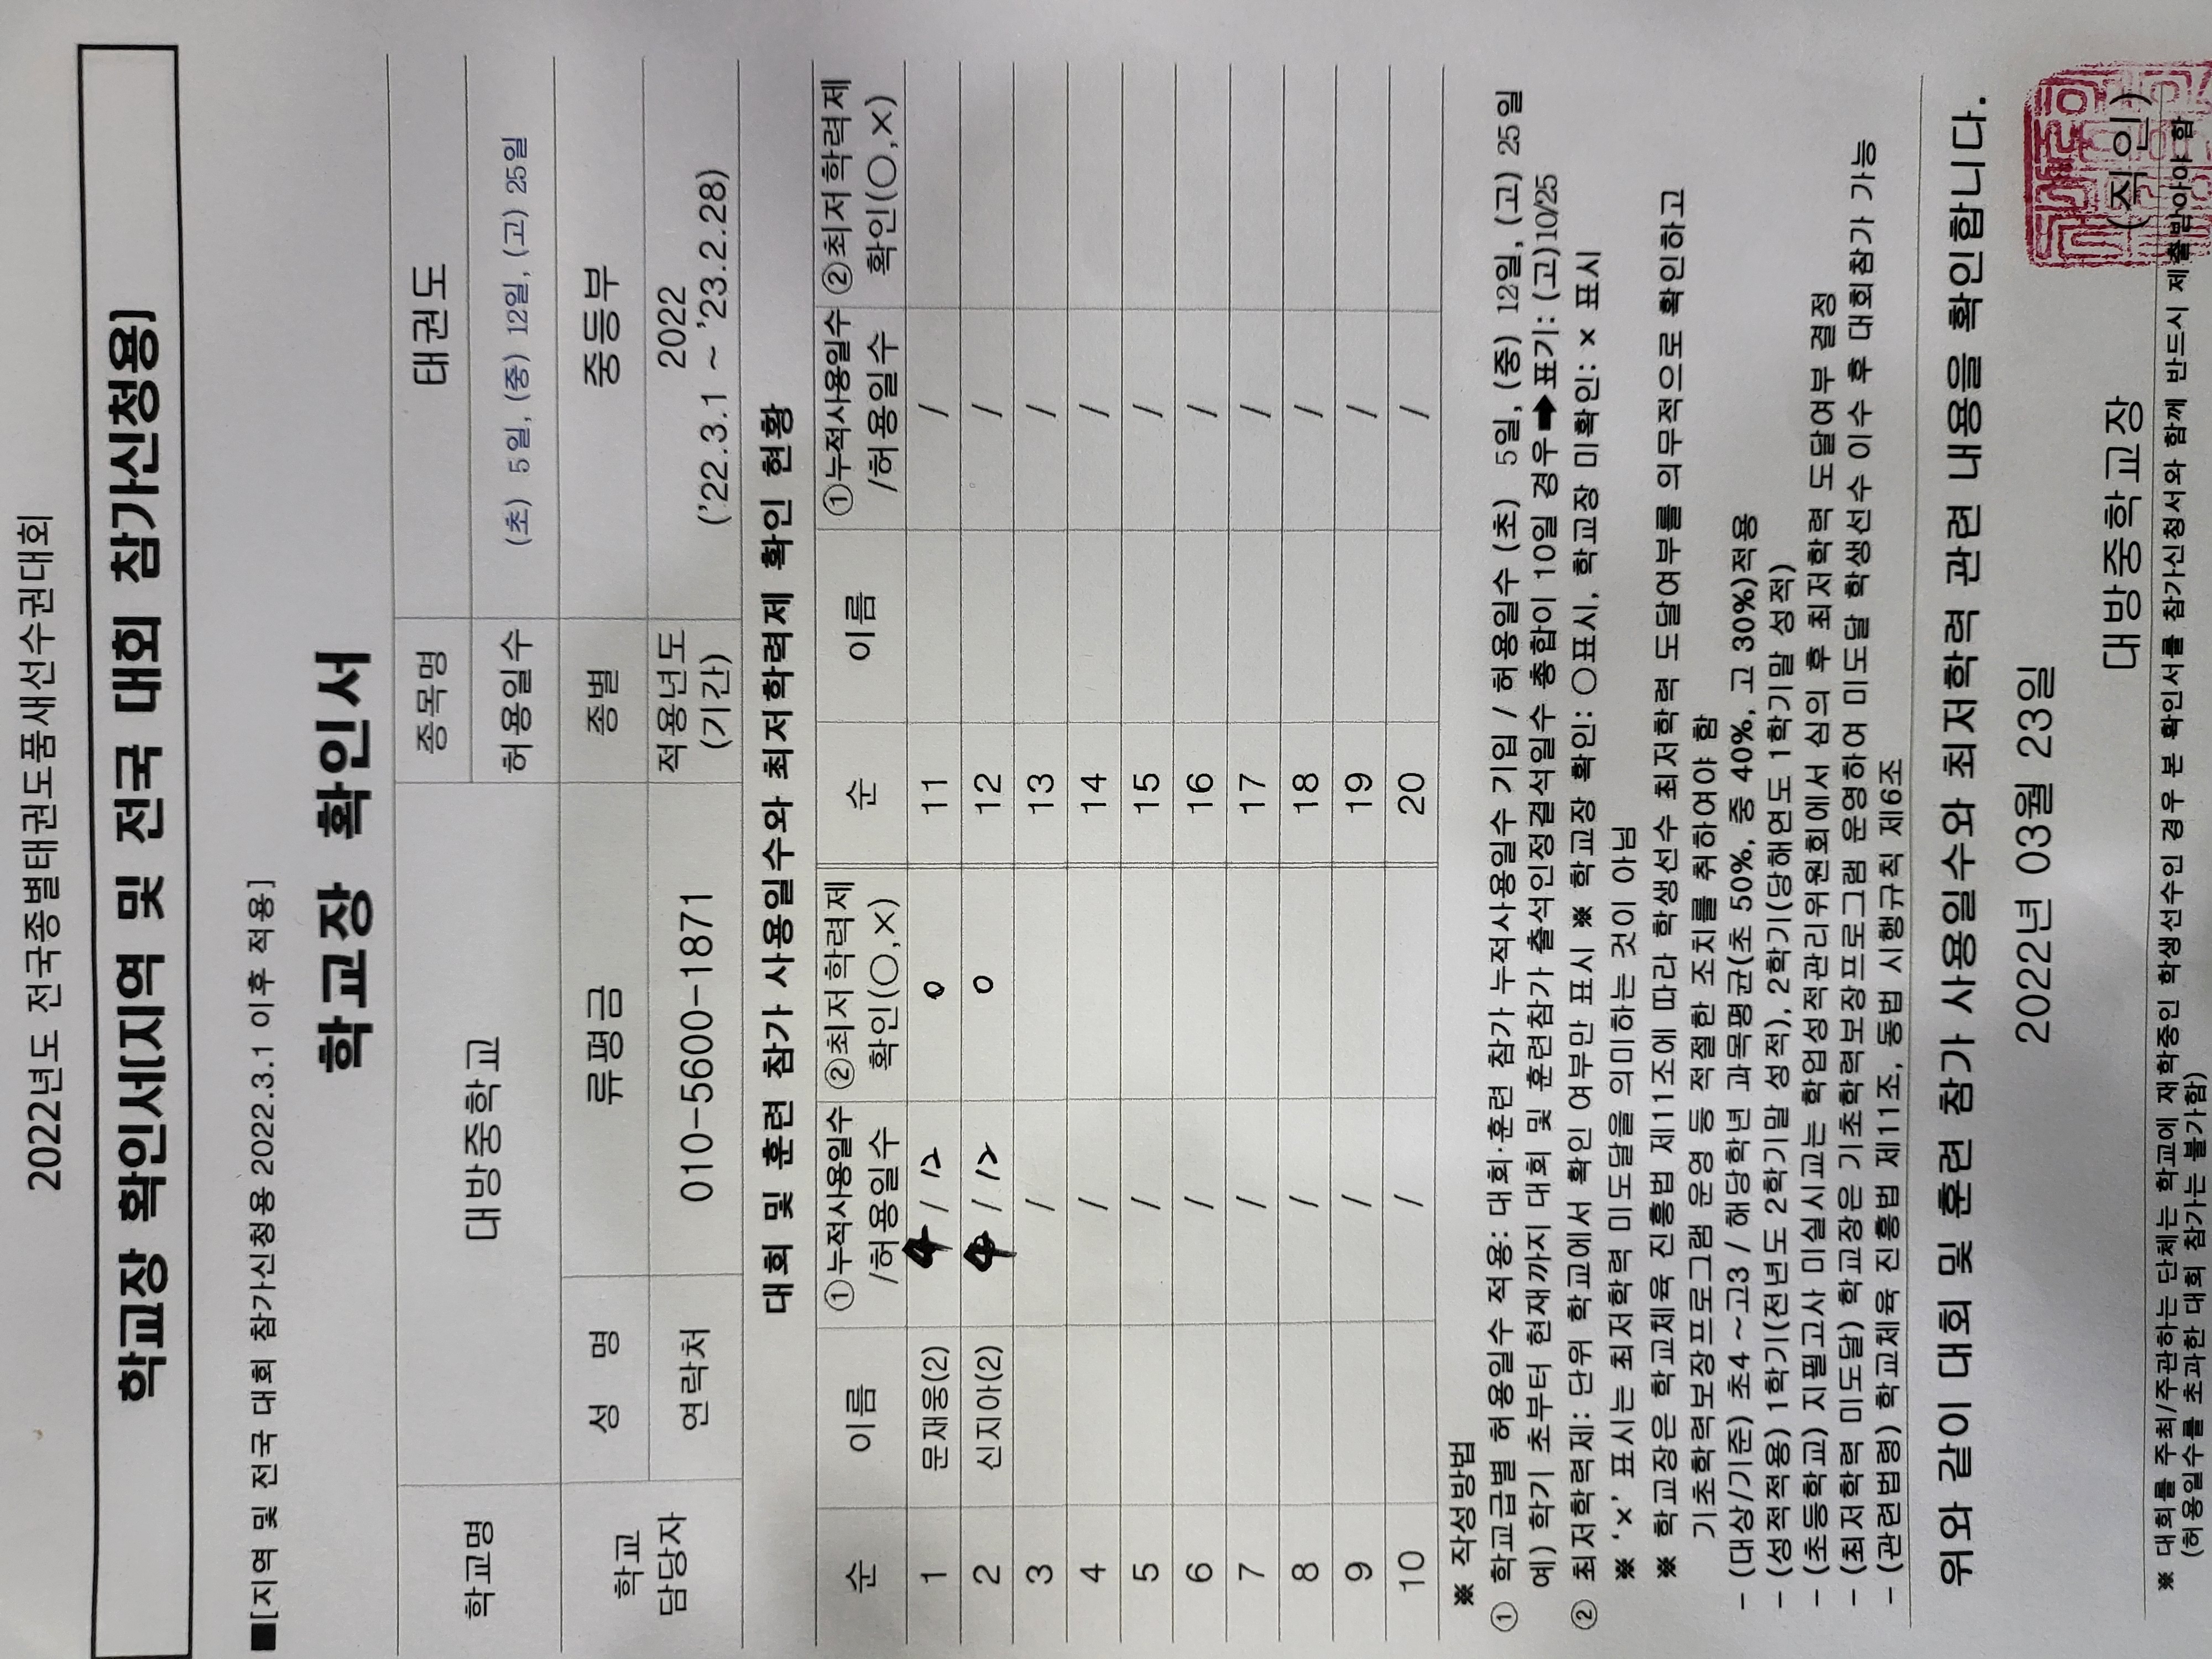 2022년도 전국종별태권도품새선수권대회
학교장 확인서[지역 및 전국 대회 참가신청용]
■[지역 및 전국 대회 참가신청용 2022.3.1 이후 적용]
학교장 확인서
학교명 대방중학교 종목명 태권도
허용일수 (초) 5일, (중) 12일, (고) 25일
학교 담당자 성 명 류평금 종별 중등부
연락처 010-5600-1871 적용년도 (기간) 2022 ('22.3.1 ~ '23.2.28)
대회 및 훈련 참가 사용일수와 최저학력제 확인 현황
순 이름 ①누적사용일수 /허용일수 ②최저학력제 확인(○,×) 순 이름 ①누적사용일수 /허용일수 ②최저학력제 확인(○,×)
1 문재웅(2) 4 / 12 o 11 /
2 신지아(2) 4 / 12 o 12 /
3 / 13 /
4 / 14 /
5 / 15 /
6 / 16 /
7 / 17 /
8 / 18 /
9 / 19 /
10 / 20 /
※ 작성방법
① 학교급별 허용일수 적용: 대회·훈련 참가 누적사용일수 기입 / 허용일수 (초) 5일, (중) 12일, (고) 25일
예) 학기 초부터 현재까지 대회 및 훈련참가 출석인정결석일수 총합이 10일 경우➡표기: (고)10/25
② 최저학력제: 단위 학교에서 확인 여부만 표시 ※ 학교장 확인: ○표시, 학교장 미확인: × 표시
※ '×' 표시는 최저학력 미도달을 의미하는 것이 아님
※ 학교장은 학교체육 진흥법 제11조에 따라 학생선수 최저학력 도달여부를 의무적으로 확인하고
기초학력보장프로그램 운영 등 적절한 조치를 취하여야 함
- (대상/기준) 초4 ~ 고3 / 해당학년 과목평균(초 50%, 중 40%, 고 30%)적용
- (성적적용) 1학기(전년도 2학기말 성적), 2학기(당해연도 1학기말 성적)
- (초등학교) 지필고사 미실시교는 학업성적관리위원회에서 심의 후 최저학력 도달여부 결정
- (최저학력 미도달) 학교장은 기초학력보장프로그램 운영하여 미도달 학생선수 이수 후 대회참가 가능
- (관련법령) 학교체육 진흥법 제11조, 동법 시행규칙 제6조
위와 같이 대회 및 훈련 참가 사용일수와 최저학력 관련 내용을 확인합니다.
2022년 03월 23일
대방중학교장 (직인)
※ 대회를 주최/주관하는 단체는 학교에 재학중인 학생선수인 경우 본 확인서를 참가신청서와 함께 반드시 제출받아야 함
(허용일수를 초과한 대회 참가는 불가함)